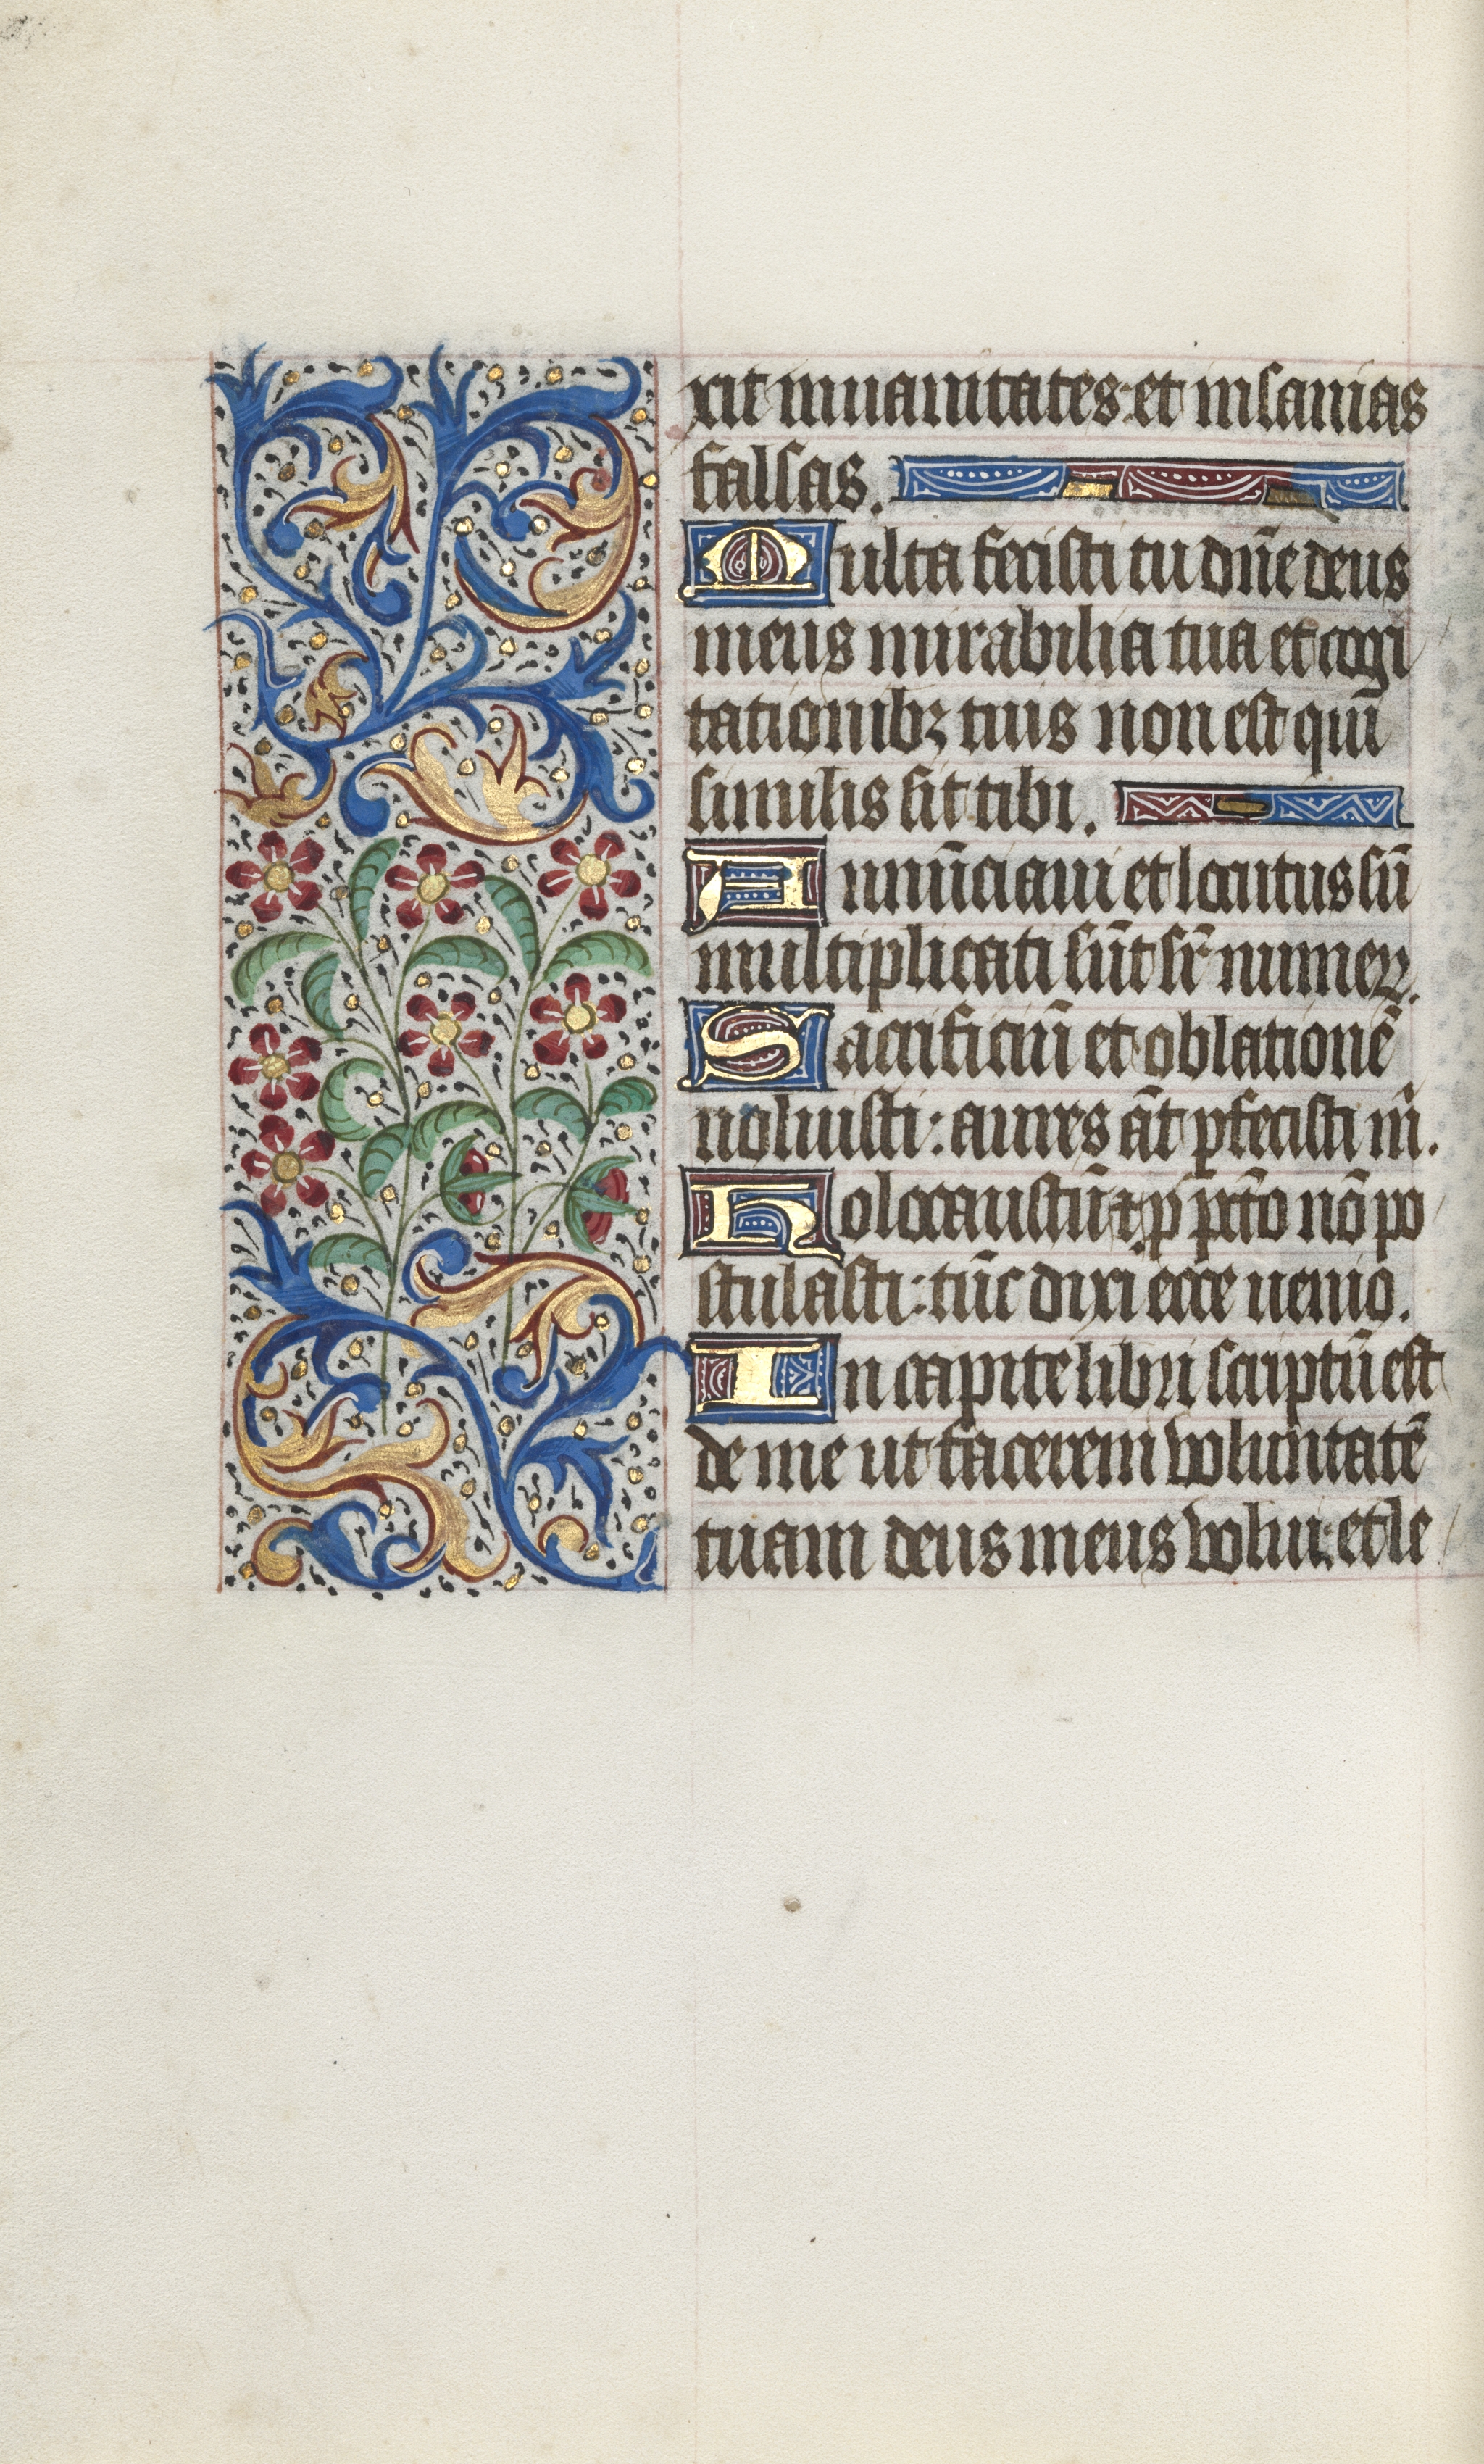 xit in uanitates et insanias
falsas.
Multa fecisti tu dn̄e deus
meus mirabilia tua et cogi
tationibꝫ tuis non est quı̄
similis sit tibi.
Annūciaui et locutus sū
multiplicati sūt sr̄ numeꝝ.
Sacrificiū et oblationē
noluisti: aures āt ꝑfecisti m̄.
Holocaustū ⁊ p̄ pctō nō po
stulasti: tūc dixi ecce uenio.
In capite libri scriptū est
de me ut facerem voluntatē
tuam deus meus volui: et le